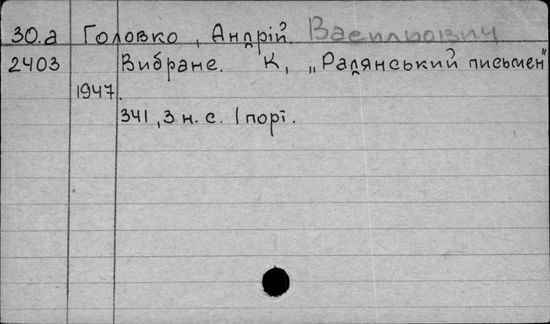 30.а Головко, Андрій. Васильович
2403 Вибране. К, „Радянський письмен"
1947.
341, 3 н. с. 1 порт.